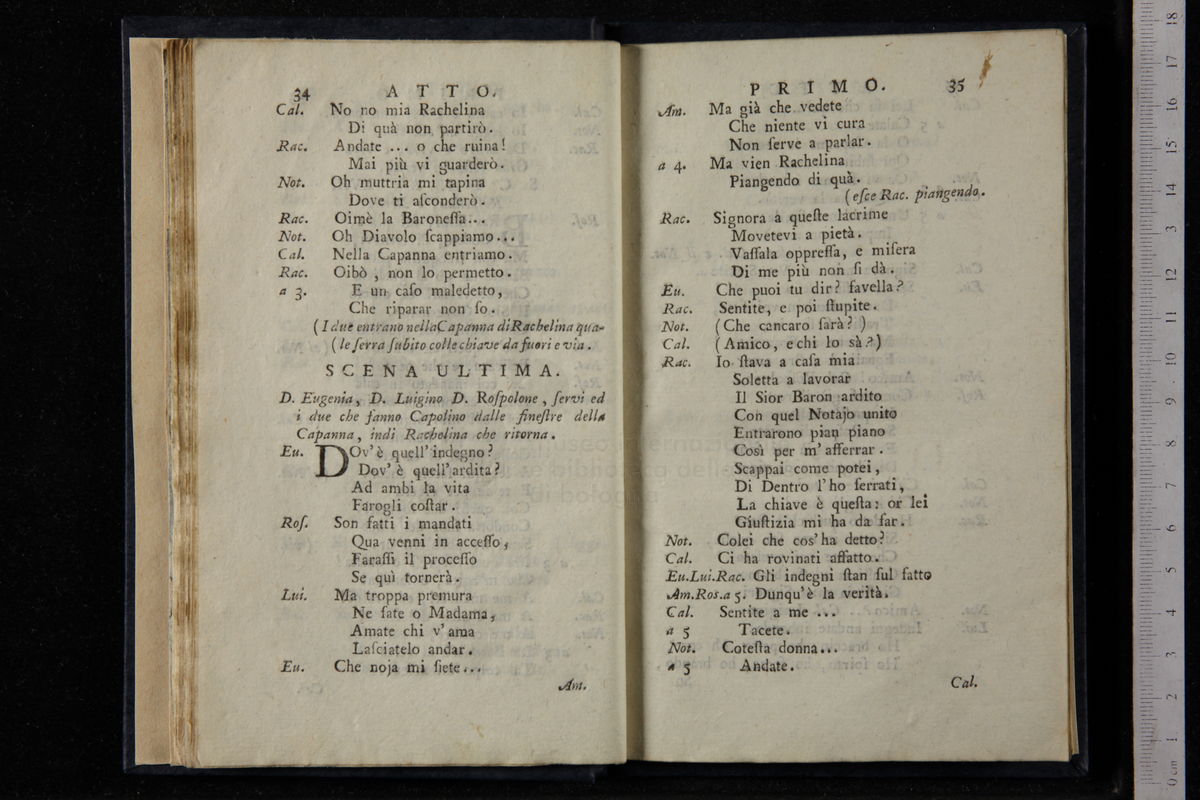 34 ATTO.
Cal. No no mia Rachelina
Di quà non partirò.
Rac. Andate ... o che ruina!
Mai più vi guarderò.
Not. Oh muttria mi tapina
Dove ti aſconderò.
Rac. Oimè la Baroneſſa...
Not. Oh Diavolo ſcappiamo...
Cal. Nella Capanna entriamo.
Rac. Oibò, non lo permetto.
a 3. E un caſo maledetto,
Che riparar non ſo.
(I due entrano nella Capanna di Rachelina qua-
(le ſerra ſubito colle chiave da fuori e via.
SCENA ULTIMA.
D. Eugenia, D. Luigino D. Roſpolone, ſervi ed
i due che fanno Capolino dalle fineſtre della
Capanna, indi Rachelina che ritorna.
Eu. DOv'è quell'indegno?
Dov'è quell'ardita?
Ad ambi la vita
Farogli coſtar.
Roſ. Son fatti i mandati
Qua venni in acceſſo,
Faraſſi il proceſſo
Se quì tornerà.
Lui. Ma troppa premura
Ne fate o Madama,
Amate chi v'ama
Laſciatelo andar.
Eu. Che noja mi ſiete...
Am.
PRIMO. 35
Am. Ma già che vedete
Che niente vi cura
Non ſerve a parlar.
a 4. Ma vien Rachelina
Piangendo di quà.
(eſce Rac. piangendo.
Rac. Signora a queſte lacrime
Movetevi a pietà.
Vaſſala oppreſſa, e miſera
Di me più non ſi dà.
Eu. Che puoi tu dir? favella?
Rac. Sentite, e poi ſtupite.
Not. (Che cancaro ſarà?)
Cal. (Amico, e chi lo sà?)
Rac. Io ſtava a caſa mia
Soletta a lavorar
Il Sior Baron ardito
Con quel Notajo unito
Entrarono pian piano
Così per m'afferrar.
Scappai come potei,
Di Dentro l'ho ſerrati,
La chiave è queſta: or lei
Giuſtizia mi ha da far.
Not. Colei che cos'ha detto?
Cal. Ci ha rovinati affatto.
Eu.Lui.Rac. Gli indegni ſtan ſul fatto
Am.Ros.a 5. Dunqu'è la verità.
Cal. Sentite a me ...
a 5 Tacete.
Not. Coteſta donna...
a 5 Andate.
Cal.